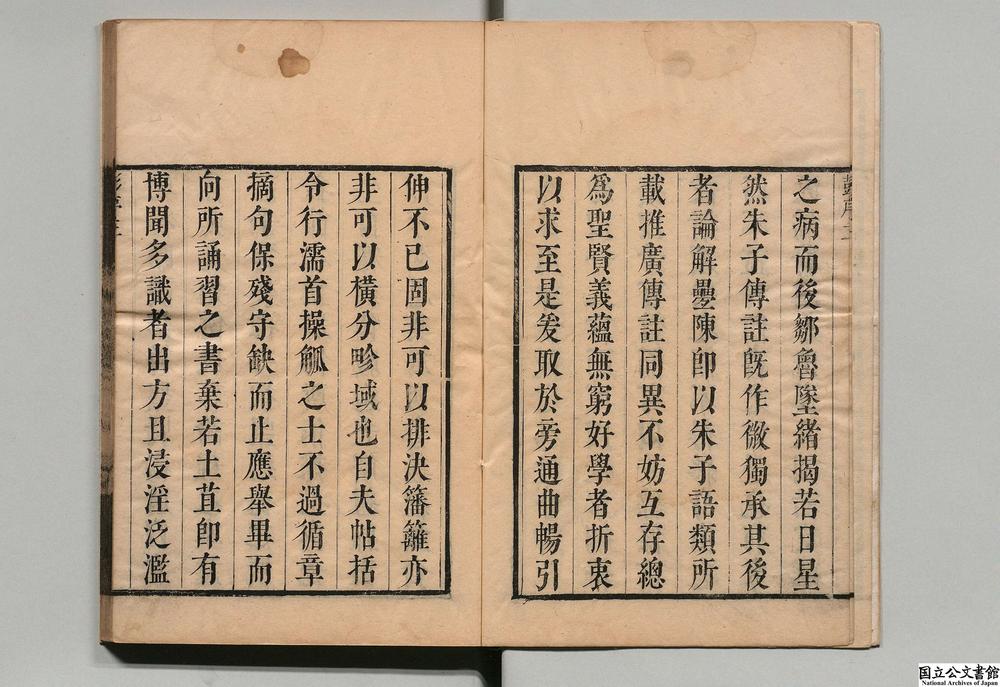 之病而後鄒魯墜緒揭若日星
然朱子傳註旣作微獨承其後
者論解疊陳卽以朱子語類所
載推廣傳註同異不妨互存總
爲聖賢義蘊無窮好學者折衷
以求至是爰取於旁通曲暢引
伸不已固非可以排決籓籬亦
非可以橫分畛域也自夫帖括
令行濡首操觚之士不過循章
摘句保殘守缺而止應舉畢而
向所誦習之書棄若土苴卽有
博聞多識者出方且浸淫泛濫
国立公文書館
National Archives of Japan